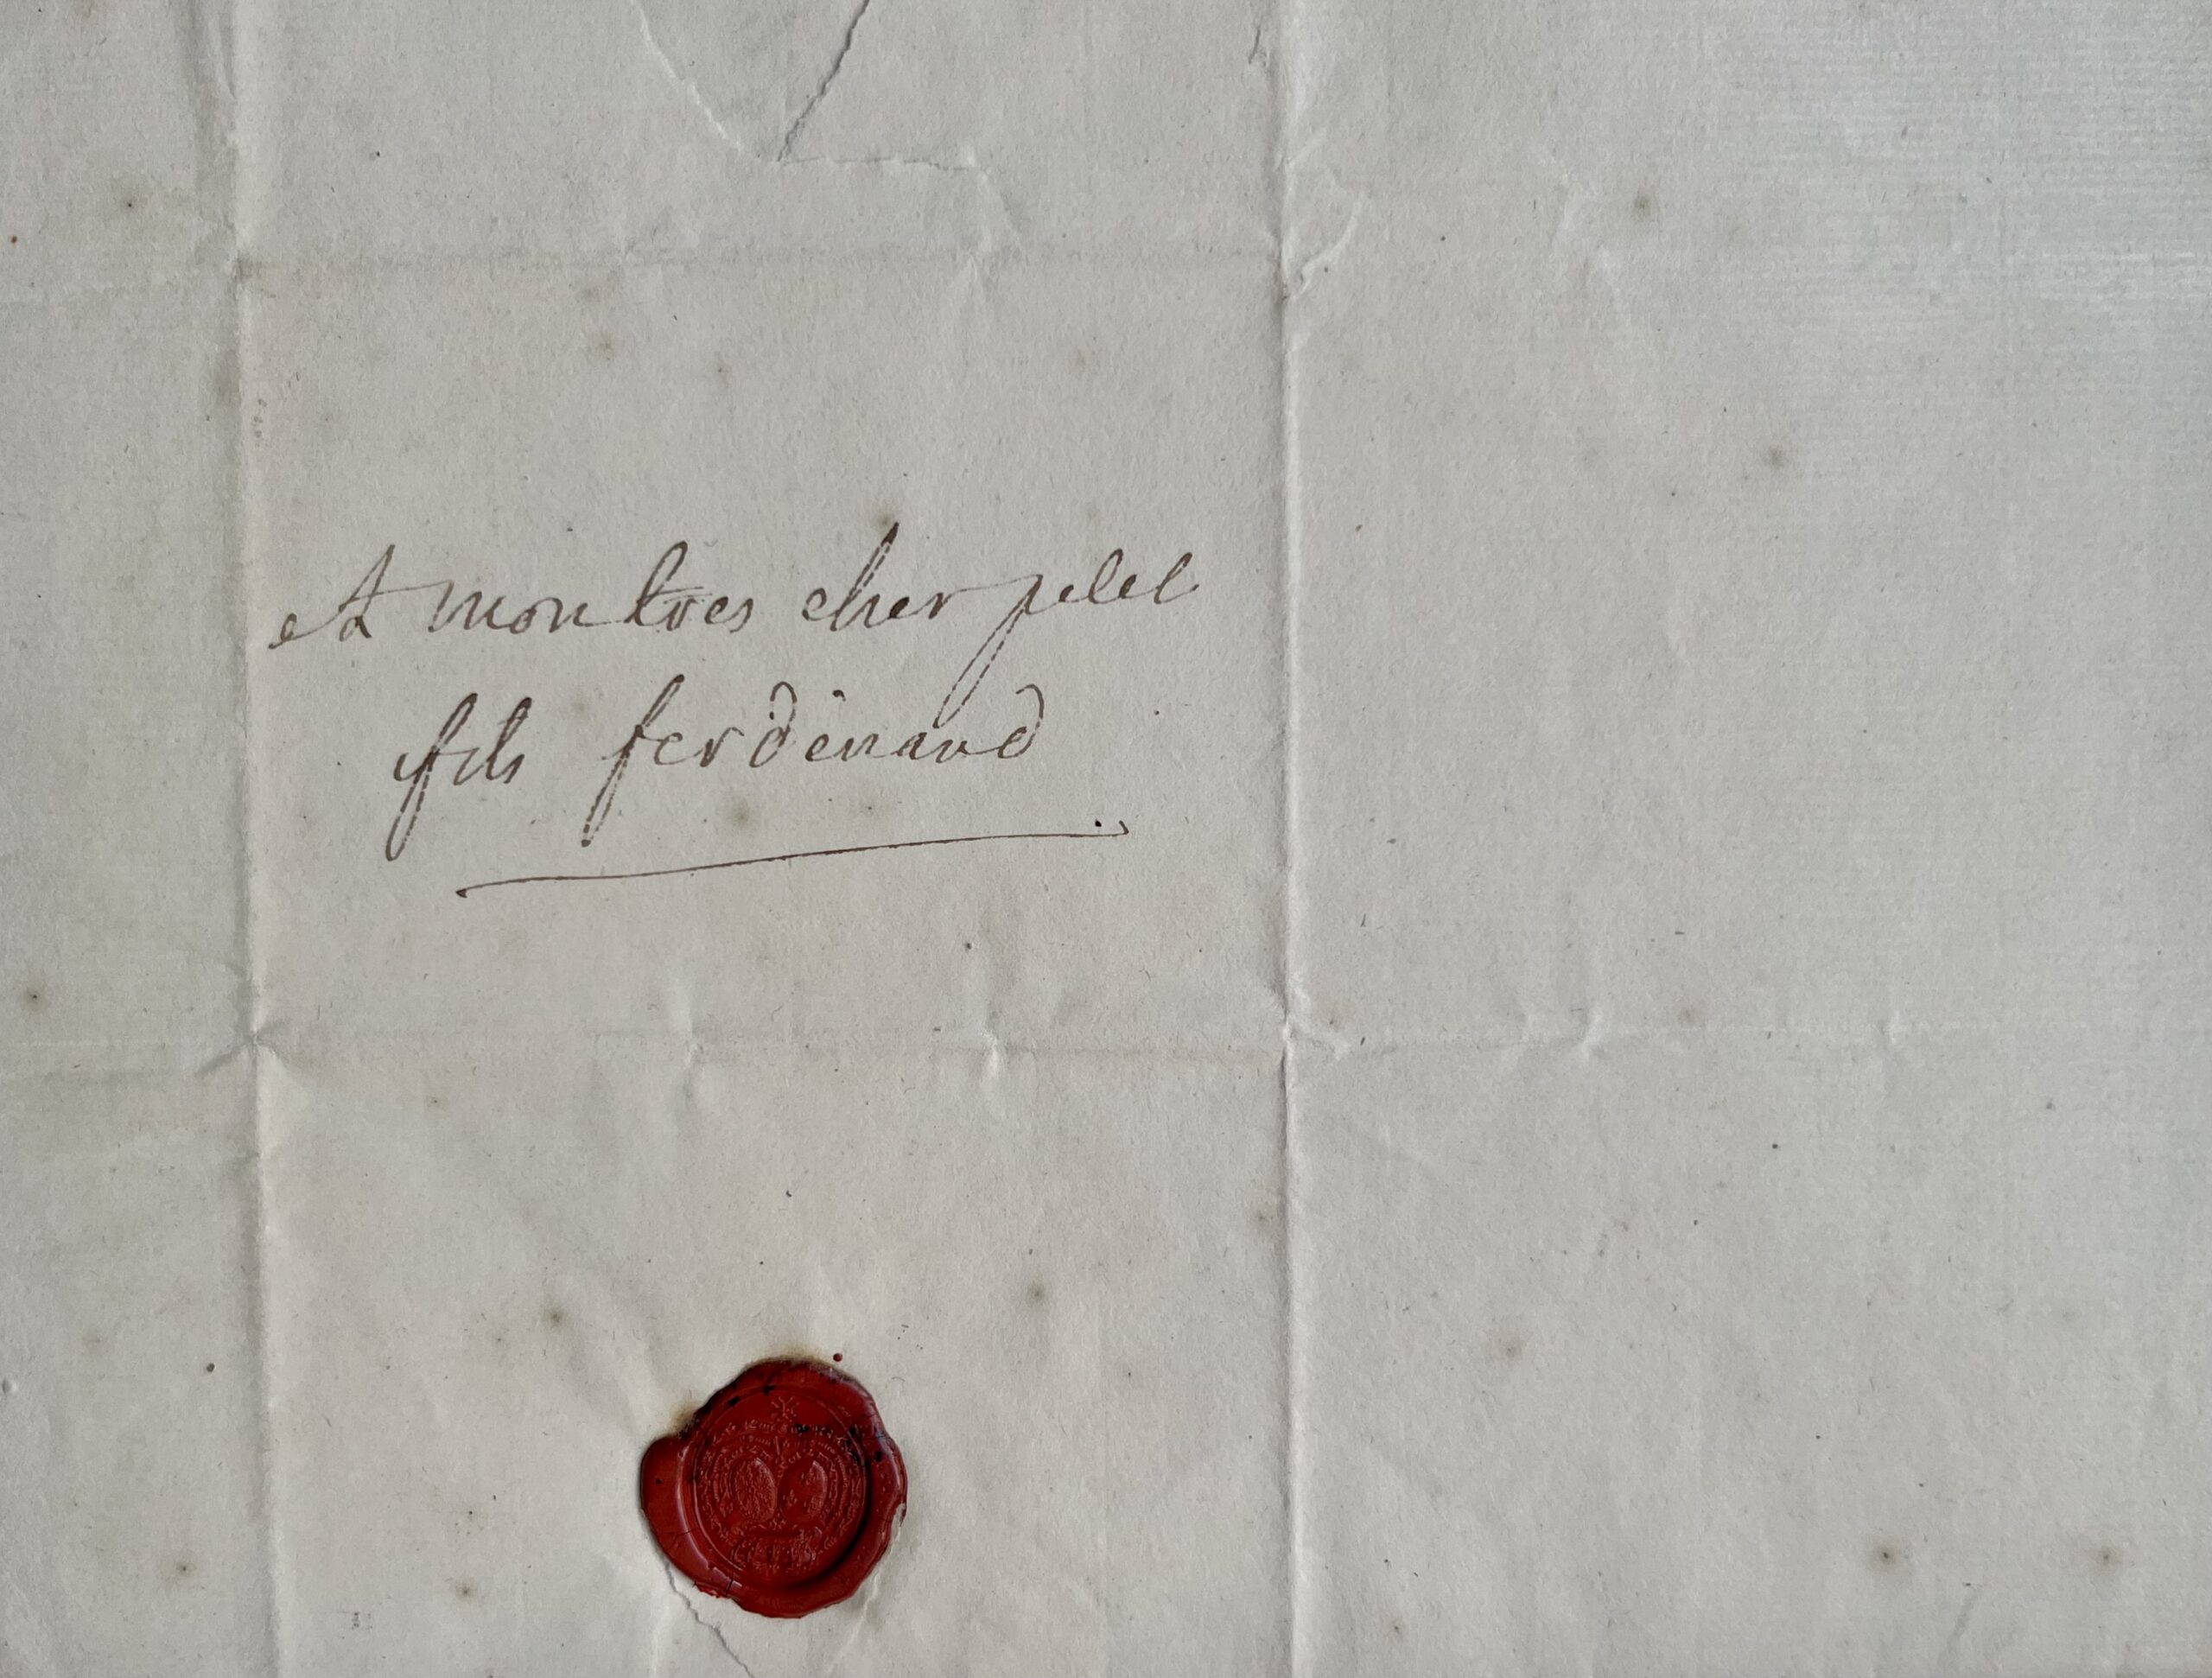 A mon tres cher petet
fils ferdinand